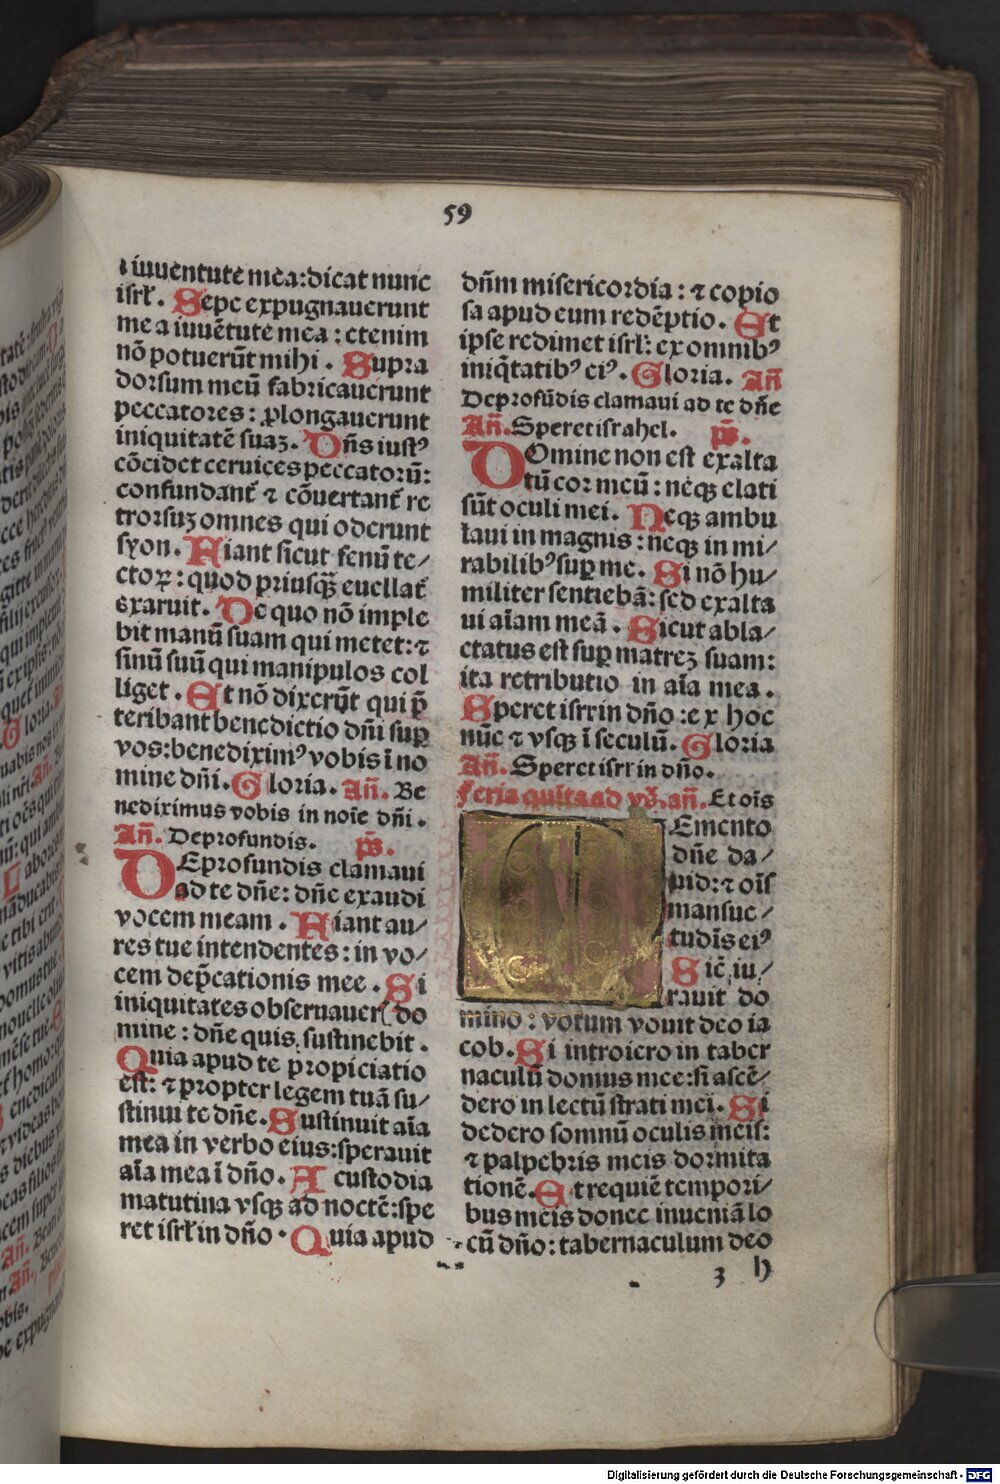 59
iuuentute mea:dicat nunc
isrł. Sepe expugnauerunt
me a iuuētute mea : etenim
nō potuerūt mihi. Supra
dorsum meū fabricauerunt
peccatores: ꝓlongauerunt
iniquitatē suaꝫ. Dn̄s iustꝰ
cōcidet ceruices peccatorū:
confundant̄ ⁊ cōuertant̄ re
trorsuꝫ omnes qui oderunt
syon. Fiant sicut fenū te/
ctoꝝ: quod priusq̄ȝ euellat̄
exaruit. De quo nō imple
bit manū suam qui metet:⁊
sinū suū qui manipulos col
liget. Et nō dixerūt qui p̄
teribant benedictio dn̄i suꝑ
vos:benediximꝰ vobis ī no
mine dn̄i. Gloria. An̄. Be
nediximus vobis in noīe dn̄i.
An̄. Deprofundis. ps̄.
DEprofundis clamaui
ad te dn̄e: dn̄e exaudi
vocem meam. Fiant au/
res tue intendentes: in vo/
cem dep̄cationis mee. Si
iniquitates obseruauer̄ do
mine: dn̄e quis sustinebit.
Quia apud te propiciatio
est: ⁊ propter legem tuā su/
stinui te dn̄e. Sustinuit aīa
mea in verbo eius:sperauit
aīa mea ī dn̄o. A custodia
matutina vsqȝ ad noctē:spe
ret isrł in dn̄o. Quia apud
dn̄m misericordia: ⁊ copio
sa apud eum redēptio. Et
ipse redimet isrł: ex omnibꝰ
iniq̄tatibꝰ eiꝰ. Gloria. An̄
Deprofūdis clamaui ad te dn̄e
An̄. Speret israhel. ps̄.
DOmine non est exalta
tū cor meū: neqȝ elati
sūt oculi mei. Neqȝ ambu
laui in magnis: neqȝ in mi/
rabilibꝰ suꝑ me. Si nō hu/
militer sentiebā: sed exalta
ui aīam meā. Sicut abla/
ctatus est suꝑ matreꝫ suam:
ita retributio in aīa mea.
Speret isrł in dn̄o: ex hoc
nūc ⁊ vsqȝ ī seculū. Gloria
An̄. Speret isrł in dn̄o.
Feria quīta ad vs̄. an̄. Et oīs
MEmento
dn̄e da/
uid: ⁊ oīs
mansue/
tudīs eiꝰ
Sic̄ iu/
rauit do
mino: votum vouit deo ia
cob. Si introiero in taber
naculū domus mee:si ascē/
dero in lectū strati mei. Si
dedero somnū oculis meis:
⁊ palpebris meis dormita
tionē. Et requiē tempori/
bus meis donec inueniā lo
cū dn̄o: tabernaculum deo
3 h
Digitalisierung gefördert durch die Deutsche Forschungsgemeinschaft - DFG